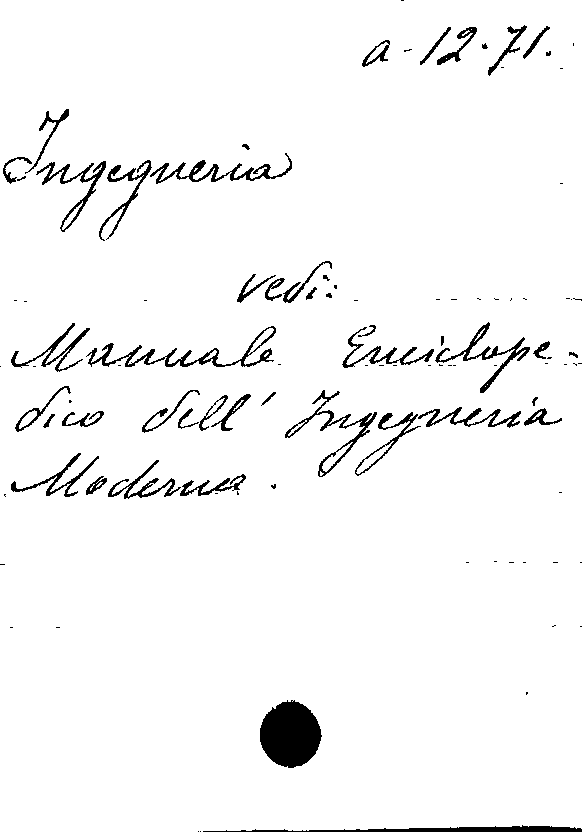 a-12-71.
Ingegneria
vedi:
Manuale Enciclope-
dico dell' Ingegneria
Moderna.